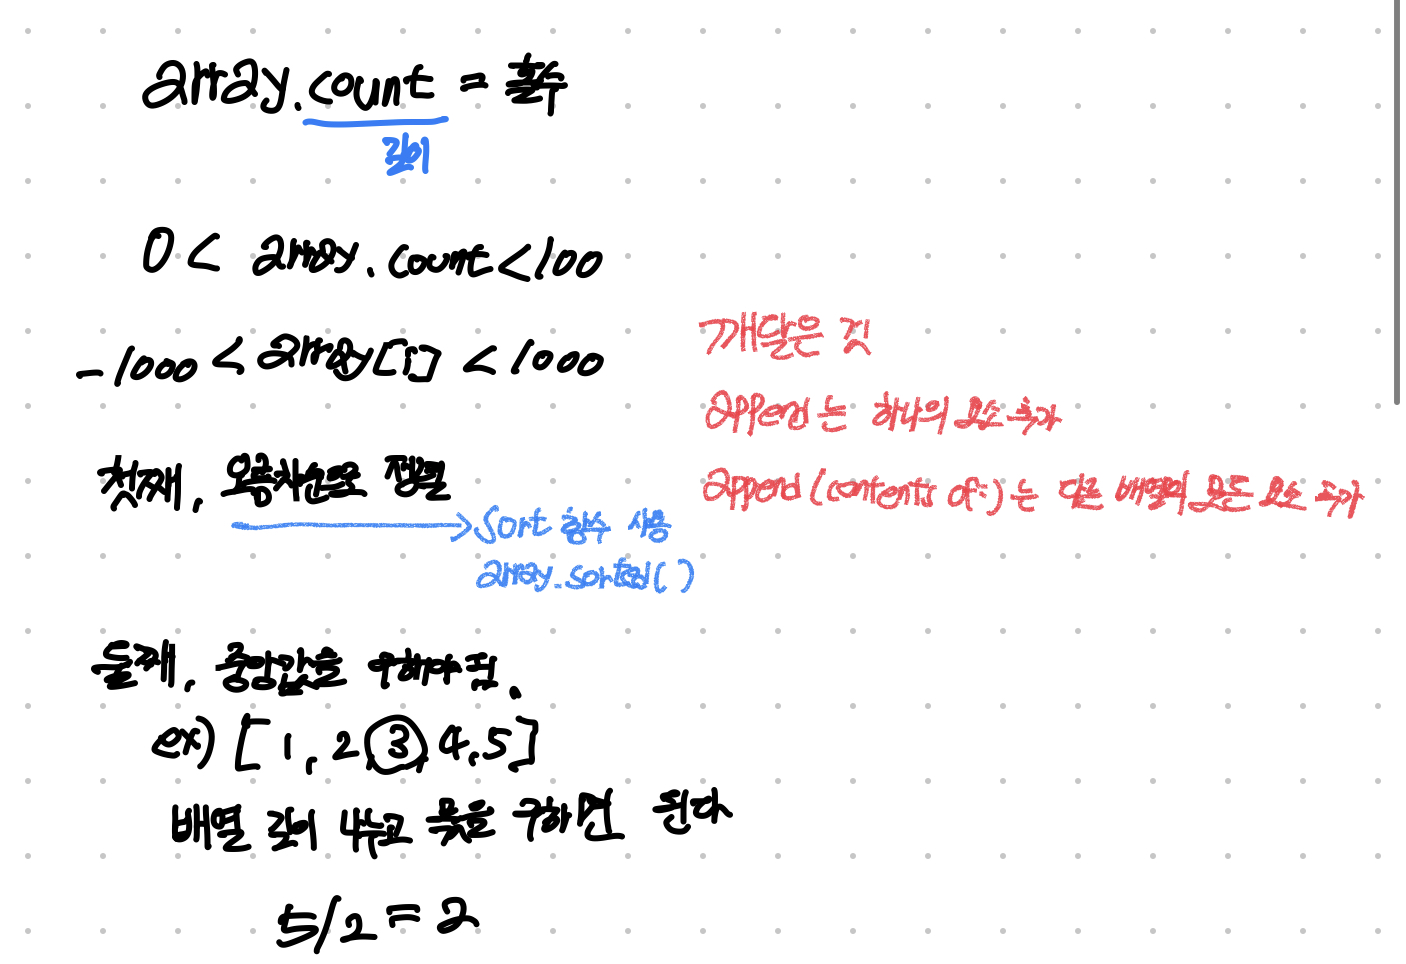 array.count = 홀수
길이
0 < array.count < 100
-1000 < array[i] < 1000
첫째, 오름차순으로 정렬
sort 함수 사용
array.sorted()
둘째, 중앙값을 구해야 됨.
ex) [1, 2, 3, 4, 5]
배열 길이 나누고 몫을 구하면 된다
5/2 = 2
깨달은 것
append는 하나의 요소 추가
append(contents of:)는 다른 배열의 모든 요소 추가